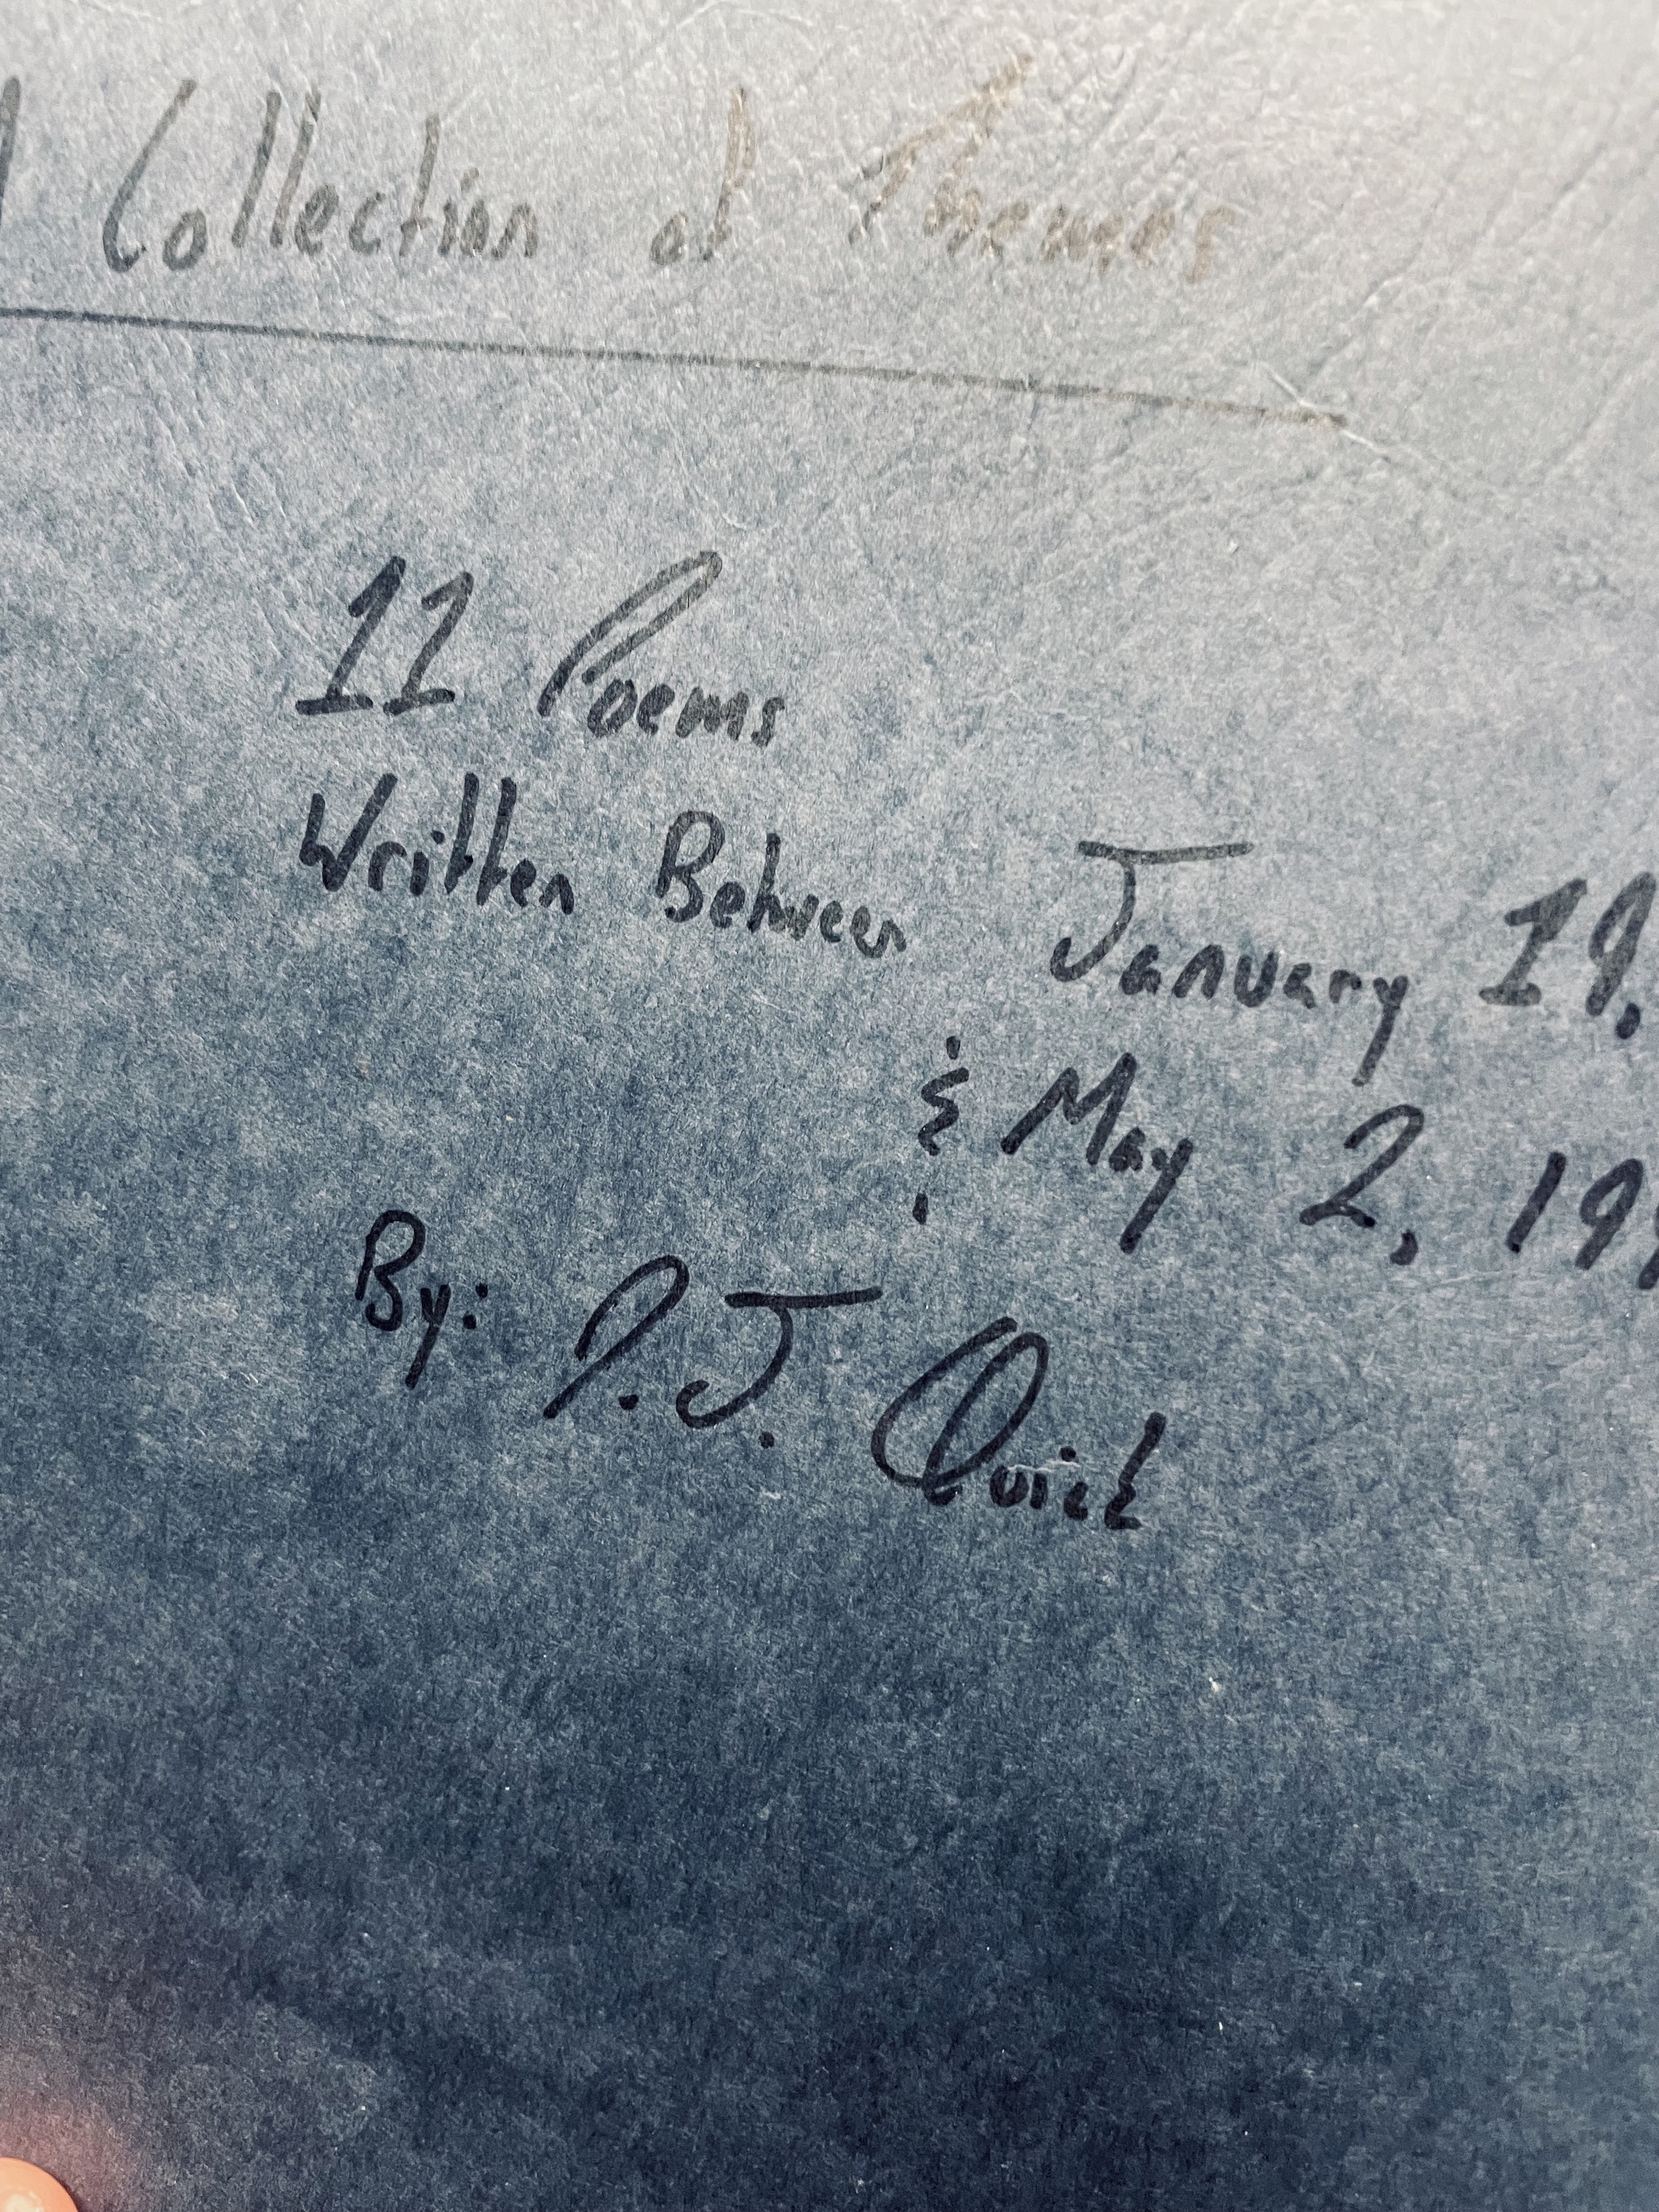 A Collection of Themes
11 Poems
Written Between January 19,
& May 2, 199
By: P.J. Quick